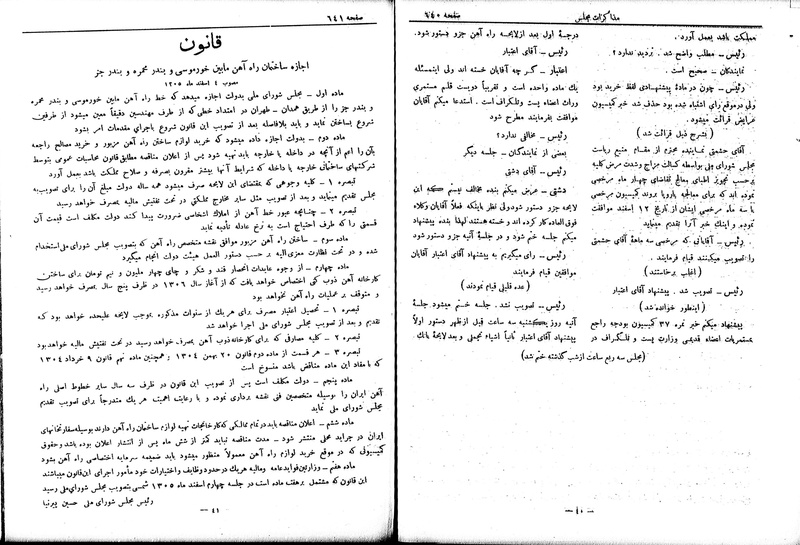 صفحه ۶۴۰
مذاکرات مجلس
مملکت باشد بعمل آورد.
رئیس ـ مطلب واضح شد. تردید ندارد؟
نمایندگان ـ صحیح است.
رئیس ـ چون در مادهٔ پیشنهادی لفظ خرید بود
ولی در موقع رأی اشتباه شده بود حذف شد خبر کمیسیون
عرایض قرائت میشود.
(بشرح ذیل قرائت شد)
آقای حشمتی نماینده محترم از مقام منیع ریاست
مجلس شورای ملی بواسطه کسالت مزاج وشدت مرض کلیه
برحسب تجویز اطبای معالج تقاضای چهار ماه مرخصی
نموده اند که برای معالجه باروپا بروند کمیسیون مرخصی
با سه ماه مرخصی ایشان از تاریخ ۱۲ اسفند موافقت
نموده و اینك خبر آنرا تقدیم مینماید
رئیس ـ آقایانی که مرخصی سه ماههٔ آقای حشمتی
را تصویب میکنند قیام فرمایند.
(اغلب برخاستند)
رئیس ـ تصویب شد. پیشنهاد آقای اعتبار
(اینطور خوانده شد)
پیشنهاد میکنم خبر نمره ۳۷ کمیسیون بودجه راجع
بمستمریات اعضاء قدیمی وزارت پست و تلگراف در
درجهٔ اول بعد از لایحه راه آهن جزو دستور شود.
رئیس ـ آقای اعتبار
اعتبار ـ گر چه آقایان خسته اند ولی اینمسئله
یك ماده واحده است و تقریباً دویست قلم مستمری
وراث اعضاء پست وتلگراف است. استدعا میکنم آقایان
موافقت بفرمایند مطرح شود
رئیس ـ مخالفی ندارد؟
بعضی از نمایندگان ـ جلسه دیگر
رئیس ـ آقای دشتی
دشتی ـ عرض میکنم بنده مخالف نیستم که این
لایحه جزو دستور شود ولی نظر باینکه فعلاً آقایان وکلاء
فوق العاده کار کرده اند و خسته هستند لهذا بنده پیشنهاد
میکنم جلسه ختم شود و در جلسهٔ آتیه جزو دستور شود
رئیس ـ رأی میگیریم به پیشنهاد آقای اعتبار آقایان
موافقین قیام فرمایند
(عده قلیلی قیام نمودند)
رئیس ـ تصویب نشد. جلسه ختم میشود جلسهٔ
آتیه روز یکشنبه سه ساعت قبل از ظهر دستور اولاً
پیشنهاد آقای اعتبار ثانیاً اشیاء تجملی و بعد لایحهٔ بانك
(مجلس سه ربع ساعت از شب گذشته ختم شد)
ـ ۴۰ ـ
صفحه ۶۴۱
قانون
اجازه ساختمان راه آهن مابین خورموسی و بندر محمره و بندر جز
مصوب ۴ اسفند ماه ۱۳۰۵
ماده اول ـ مجلس شورای ملی بدولت اجازه میدهد که خط راه آهن مابین خورموسی و بندر محمره
و بندر جز را از طریق همدان ـ طهران در امتداد خطی که از طرف مهندسین دقیقاً معین میشود از طرفین
شروع بساختن نماید و باید بلافاصله بعد از تصویب این قانون شروع باجرای مقدمات امر بشود
ماده دوم ـ بدولت اجازه داده میشود که خرید لوازم ساختن راه آهن مزبور و خرید مصالح راجعه
بآن را اعم از آنچه در داخله یا خارجه باید تهیه شود پس از اعلان مناقصه مطابق قانون محاسبات عمومی بتوسط
شرکتهای ساختمانی خارجی یا داخله که شرایط آنها بیشتر مقرون بصرفه و صلاح مملکت باشد بعمل آورد
تبصره ۱ ـ کلیه وجوهی که بمقتضای این لایحه صرف میشود همه ساله دولت مبلغ آن را برای تصویب به
مجلس تقدیم مینماید و بعد از تصویب مثل سایر مخارج مملکتی در تحت تفتیش مالیه بمصرف خواهد رسید
تبصره ۲ ـ چنانچه عبور خط آهن از املاك اشخاصی ضرورت پیدا کند دولت مکلف است قیمت آن
قسمتی را که طرف احتیاج است به نرخ عادله تأدیه نماید
ماده سوم ـ ساختن راه آهن مزبور موافق نقشه متخصص راه آهن که بتصویب مجلس شورای ملی استخدام
شده و در تحت نظارت معزی الیه بر حسب دستور العمل هیئت دولت انجام میگیرد
ماده چهارم ـ از وجوه عایدات انحصار قند و شکر و چای چهار ملیون و نیم تومان برای ساختن
کارخانه آهن ذوب کنی اختصاص خواهد یافت که از آغاز سال ۱۳۰۶ در ظرف پنج سال بمصرف خواهد رسید
و متوقف بر عملیات راه آهن نخواهد بود
تبصره ۱ ـ تحصیل اعتبار مصرف برای هریك از سنوات مذکوره بموجب لایحه علیحده خواهد بود که
تقدیم و بعد از تصویب مجلس شورای ملی اجرا خواهد شد
تبصره ۲ ـ کلیه مصارفی که برای کارخانه ذوب آهن بمصرف خواهد رسید در تحت تفتیش مالیه خواهد بود
تبصره ۳ ـ هر قسمت از ماده دوم قانون ۲۰ بهمن ۱۳۰۴ و همچنین ماده نهم قانون ۹ خرداد ۱۳۰۴
که با مفاد این ماده مناقض باشد منسوخ است
ماده پنجم ـ دولت مکلف است پس از تصویب این قانون در ظرف سه سال سایر خطوط اصلی راه
آهن ایران را بوسیله متخصصین فنی نقشه برداری نموده و با رعایت اهمیت هر یك متدرجاً برای تصویب تقدیم
مجلس شورای ملی نماید
ماده ششم ـ اعلان مناقصه باید در تمام ممالکی که کارخانجات تهیه لوازم ساختمان راه آهن دارند بوسیله سفارتخانهای
ایران در جراید محلی منتشر شود ـ مدت مناقصه نباید کمتر از شش ماه پس از انتشار اعلان بوده باشد وحقوق
کمیسیونی که در موقع خرید لوازم راه آهن معمولاً منظور میشود باید ضمیمه سرمایه اختصاصی راه آهن بشود
ماده هفتم ـ وزارتین فواید عامه ومالیه هر یك در حدود وظایف و اختیارات خود مأمور اجرای این قانون میباشند
این قانون که مشتمل بر هفت ماده است در جلسه چهارم اسفند ماه ۱۳۰۵ شمسی بتصویب مجلس شورای ملی رسید
رئیس مجلس شورای ملی حسین پیرنیا
ـ ۴۱ ـ